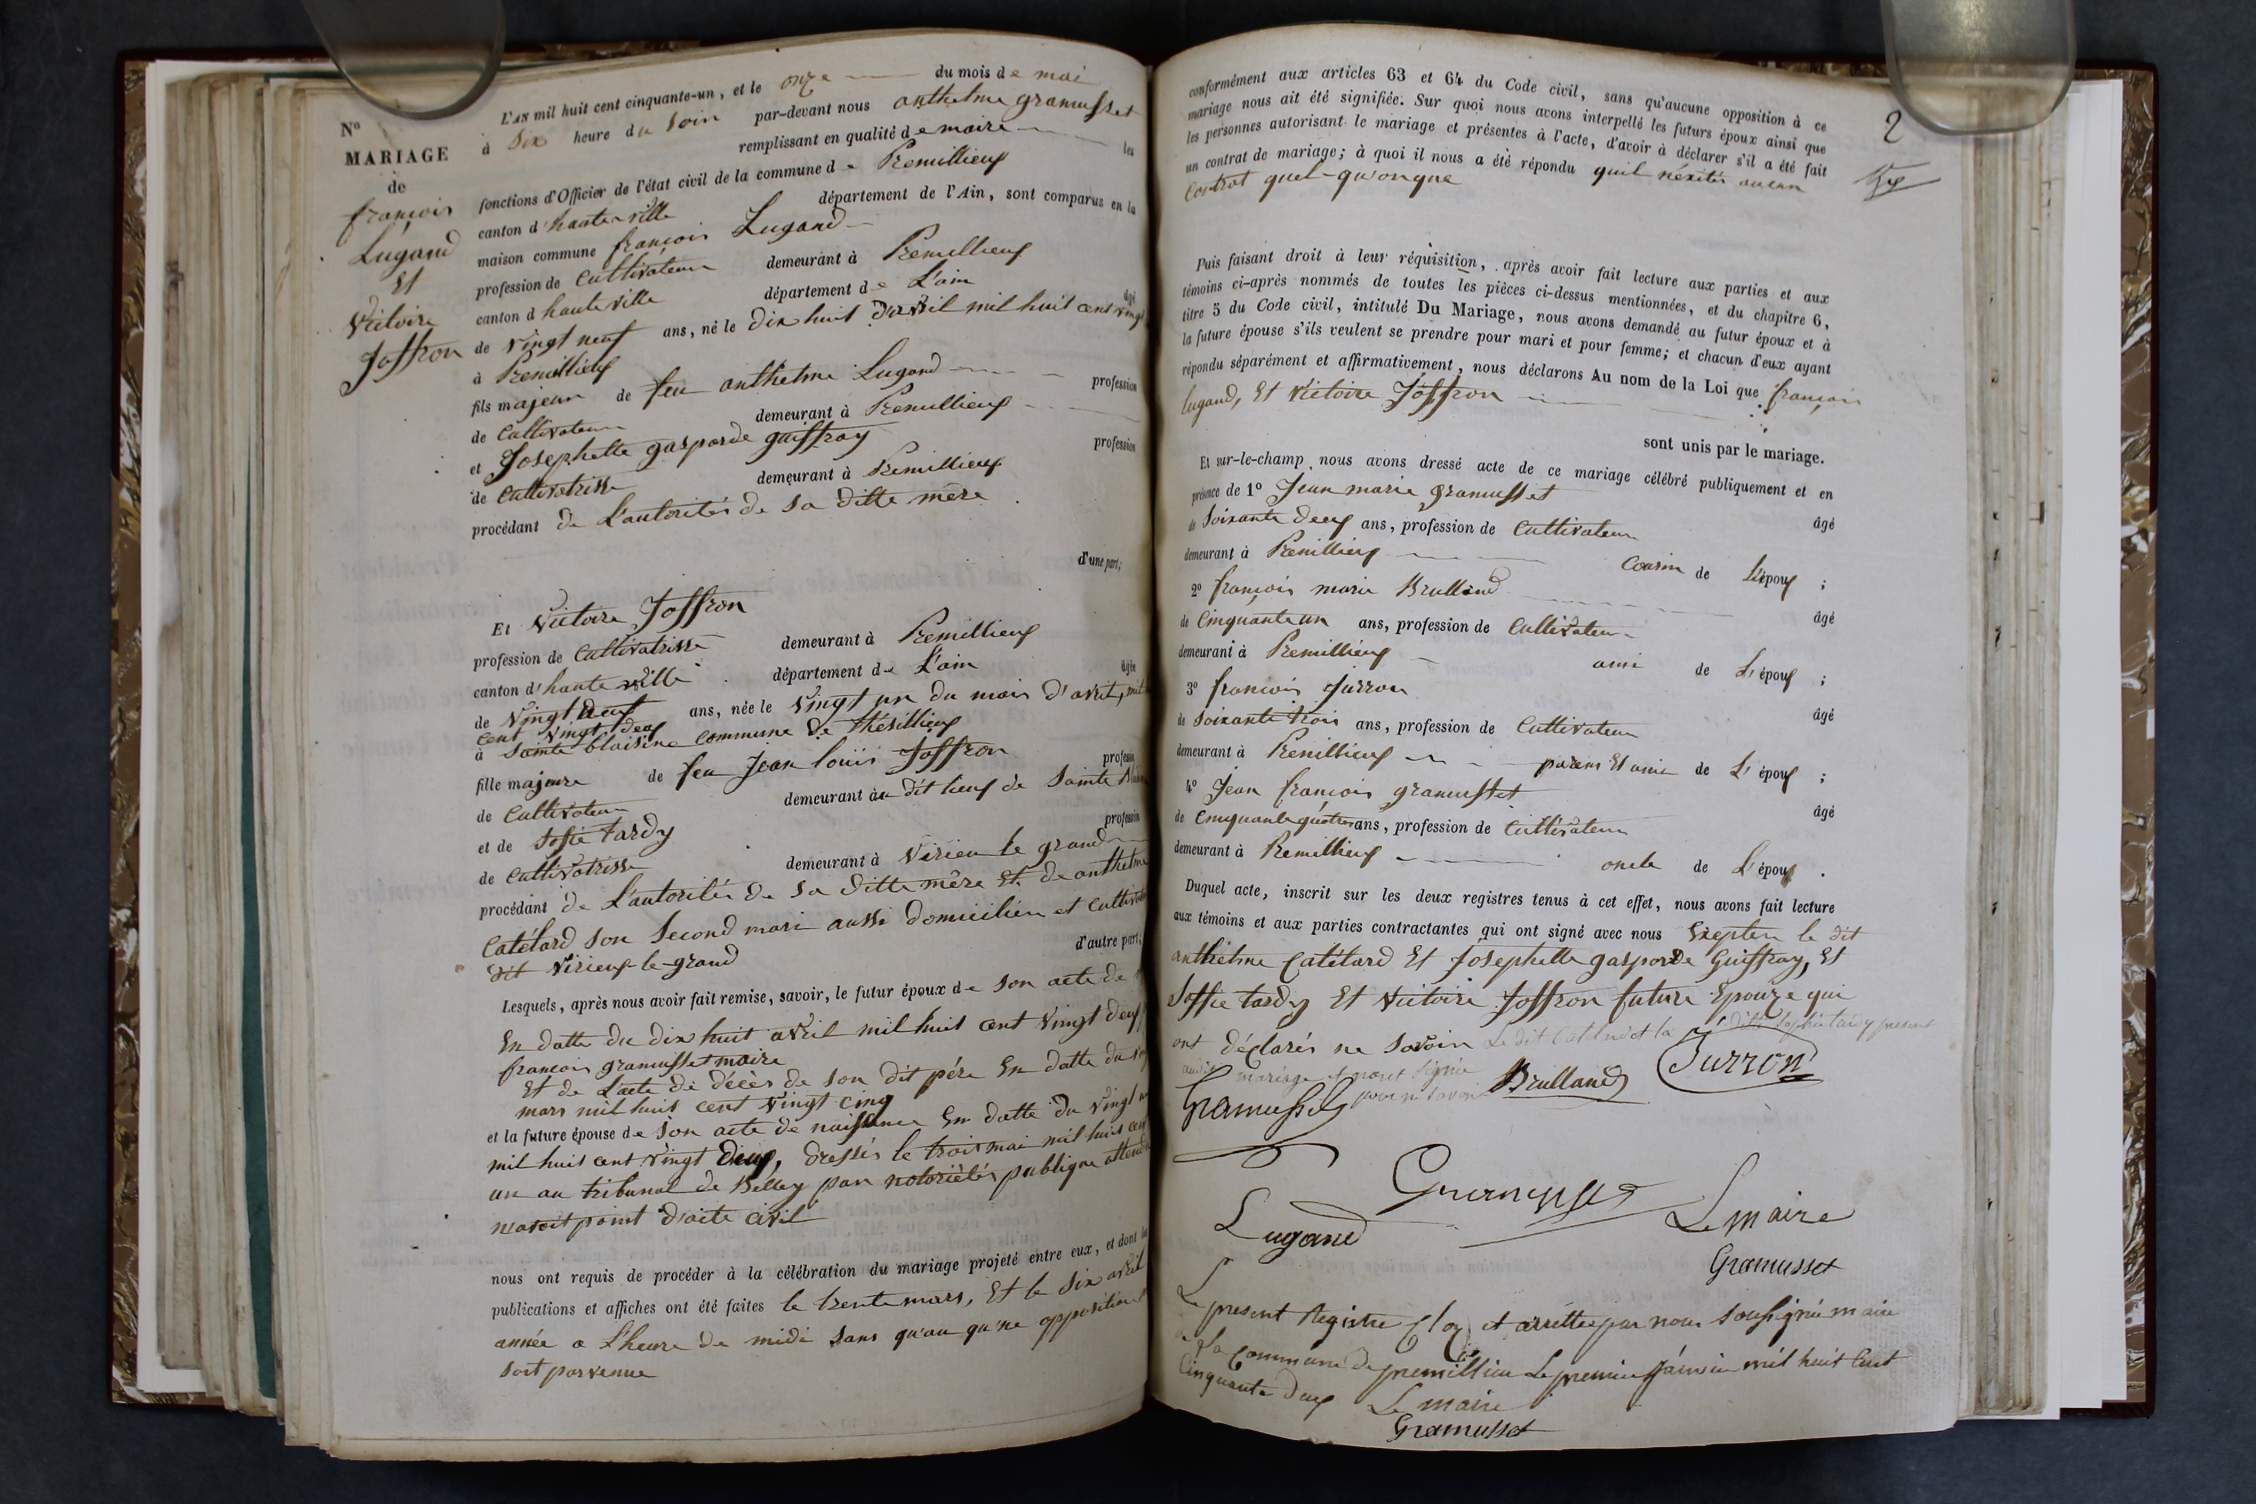 Nº
MARIAGE
de
françois
Lugand
Et
Victoire
Joffron
L'AN mil huit cent cinquante-un, et le onze du mois de mai
à Six heure du Soir par-devant nous anthelme gramusset
remplissant en qualité de maire les
fonctions d'Officier de l'état civil de la commune de Premillieux
canton d'hauteville département de l'Ain, sont comparus en la
maison commune françois Lugand
profession de Cultivateur demeurant à Premillieux
canton d hauteville département de L'ain âgé
de vingt neuf ans, né le dix huit davril mil huit cent vingt
à Premillieux
fils majeur de feu anthelme Lugand profession
de Cultivateur demeurant à Premillieux
et Josephette gasparde guiffray profession
de Cultivatrisse demeurant à Premillieux
procédant de L'autorités de Sa ditte mère
d'une part;
Et Victoire Joffron
profession de Cultivatrisse demeurant à Premillieux
canton d'hauteville département de L'ain âgée
de vingt neuf ans, née le vingt un du mois d'avril, mil
cent vingt deux
à Sainte blaisine commune de Thésillieux
fille majeure de feu Jean louis Joffron profession
de Cultivateur demeurant au dit lieux de Sainte
et de Soffie tardy profession
de Cultivatrisse demeurant à Virieu le grand
procédant de L'autorités de Sa ditte mère Et de anthelme
Catélard Son Second mari aussi domicilien et Cultivateur
dit Virieux-le-grand d'autre part;
Lesquels, après nous avoir fait remise, savoir, le futur époux de Son acte de
En datte du dix huit avril mil huit cent vingt deux
françois gramusset maire
Et de L'acte de décès de Son dit père En datte du
mars mil huit cent vingt cinq
et la future épouse de Son acte de naissance En datte du vingt un
mil huit cent vingt deux, dressés le trois mai mil huit cent
un au tribunal de Belley par notoriétés publique attendu
n'avoit point d'acte civil
nous ont requis de procéder à la célébration du mariage projeté entre eux, et dont les
publications et affiches ont été faites le trente mars, Et le Six avril
année a L'heure de midi Sans qu'au qu'ne opposition
Soit parvenue
2
conformément aux articles 63 et 64 du Code civil, sans qu'aucune opposition à ce
mariage nous ait été signifiée. Sur quoi nous avons interpellé les futurs époux ainsi que
les personnes autorisant le mariage et présentes à l'acte, d'avoir à déclarer s'il a été fait
un contrat de mariage; à quoi il nous a été répondu quil néxités aucun
Contrat quel-qu'onque
Puis faisant droit à leur réquisition, après avoir fait lecture aux parties et aux
témoins ci-après nommés de toutes les pièces ci-dessus mentionnées, et du chapitre 6,
titre 5 du Code civil, intitulé Du Mariage, nous avons demandé au futur époux et à
la future épouse s'ils veulent se prendre pour mari et pour femme; et chacun d'eux ayant
répondu séparément et affirmativement, nous déclarons Au nom de la Loi que françois
lugand, Et Victoire Joffron
sont unis par le mariage.
Et sur-le-champ nous avons dressé acte de ce mariage célébré publiquement et en
présence de 1º Jean marie gramusset âgé
de Soixante deux ans, profession de Cultivateur
demeurant à Premillieux Cousin de L'époux ;
2º françois marie Brulland âgé
de Cinquante un ans, profession de Cultivateur
demeurant à Premillieux ami de L'époux ;
3º françois Jurron âgé
de Soixante trois ans, profession de Cultivateur
demeurant à Premillieux parens Et ami de L'époux ;
4º Jean françois gramusset âgé
de Cinquante quatre ans, profession de Cultivateur
demeurant à Premillieux oncle de L'époux .
Duquel acte, inscrit sur les deux registres tenus à cet effet, nous avons fait lecture
aux témoins et aux parties contractantes qui ont signé avec nous Exepter le dit
anthelme Catélard Et Josephette gasparde Guiffray, Et
Soffie tardy Et Victoire Joffron future Epouze qui
ont déclarés ne Savoir Le dit Catelard et la ditte Sophie tardy present
audit mariage et n'ont Signé
pour ne Savoir Brulland Jurron
Gramusset
Gramusset
Lugand
Le maire
Gramusset
Le present Registre Clos et arrettée par nous Soussignée maire
de La Commune de premillieu Le premier Janvier mil huit Cent
Cinquante deux Le maire
Gramusset